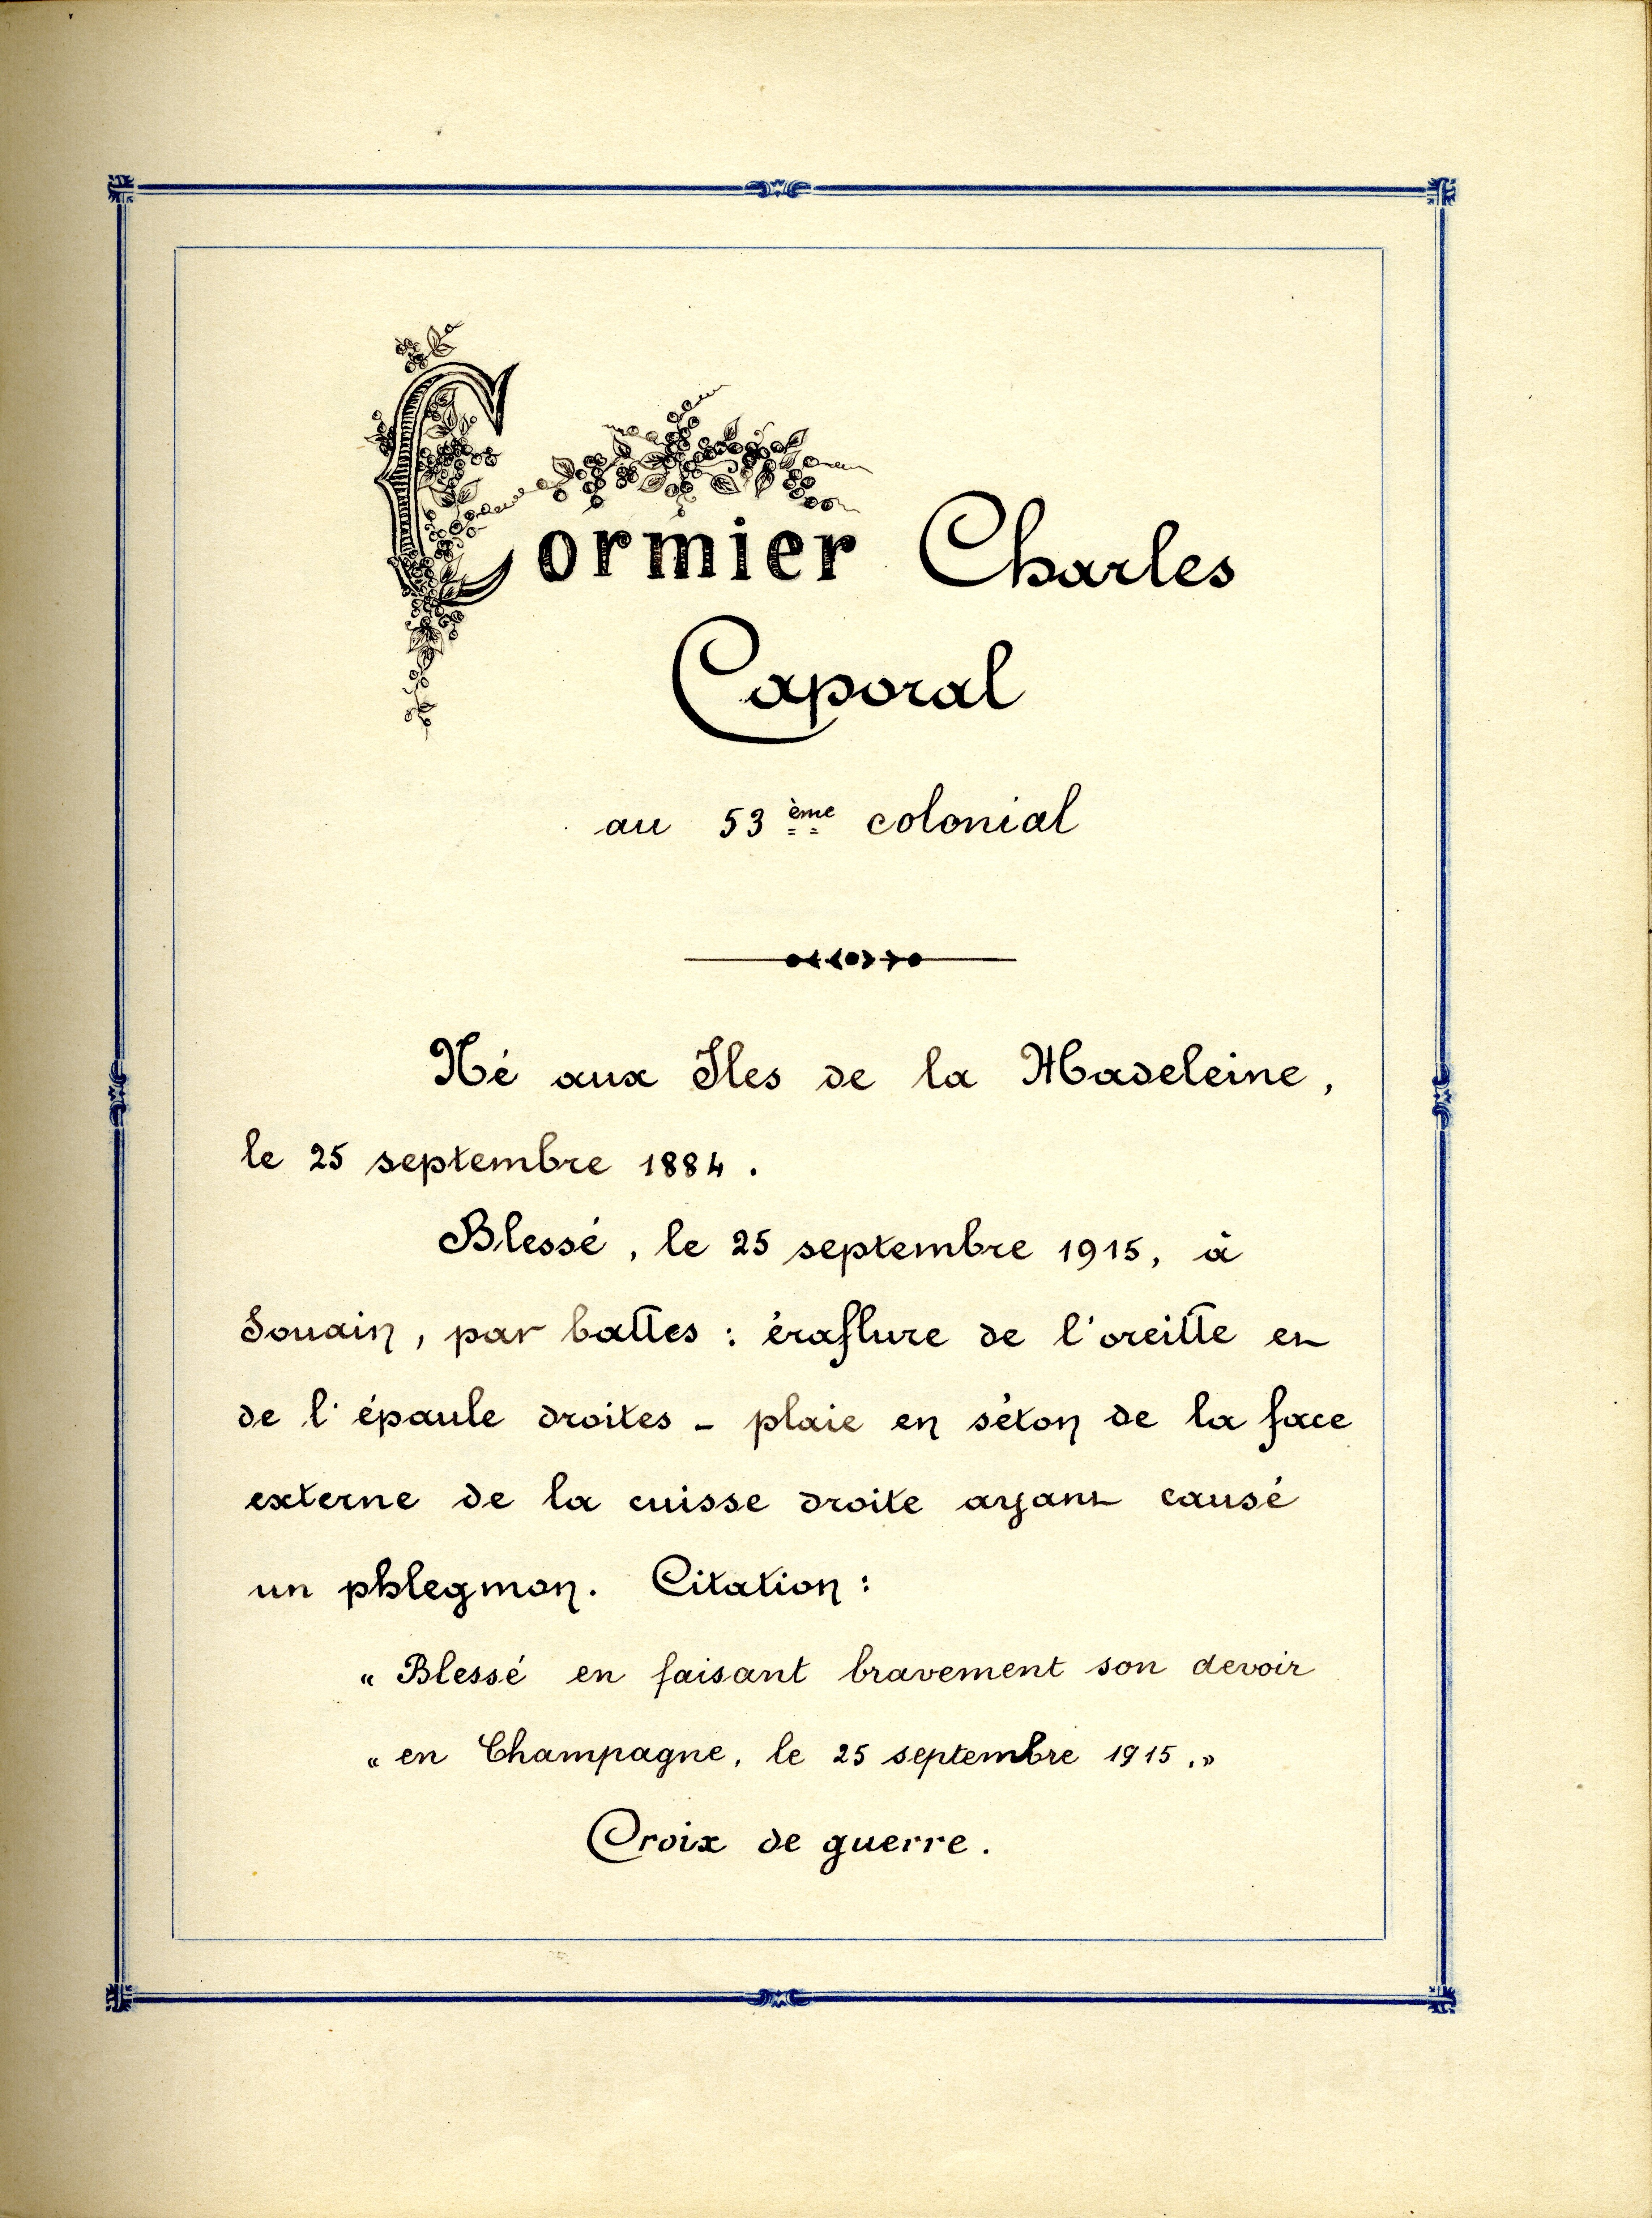 Cormier Charles
Caporal
au 53ème colonial
Né aux Iles de la Madeleine,
le 25 septembre 1884.
Blessé, le 25 septembre 1915, à
Souain, par balles : éraflure de l'oreille et
de l'épaule droites - plaie en séton de la face
externe de la cuisse droite ayant causé
un phlegmon. Citation :
« Blessé en faisant bravement son devoir
« en Champagne, le 25 septembre 1915. »
Croix de guerre.